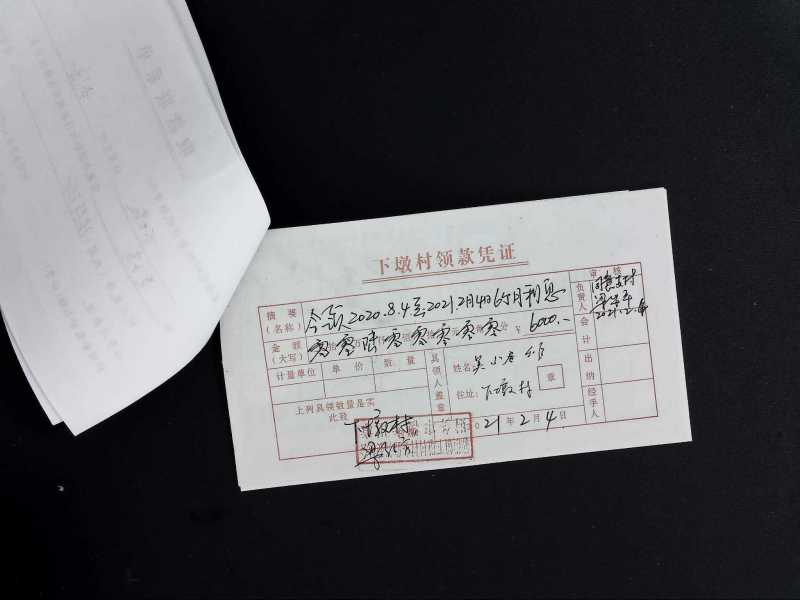 下墩村领款凭证
摘要（名称） 今领2020.8.4至2021.2月4日6个月利息
金额（大写） 零零陆零零零零零 ¥6000.-
计量单位 单价 数量
具领人盖章
姓名 吴小
住址 下墩村
章
上列具领数量是实
此致
下墩村
2021年2月4日
审核
负责人 同意支付
2021.2.4
会计
出纳
经手人